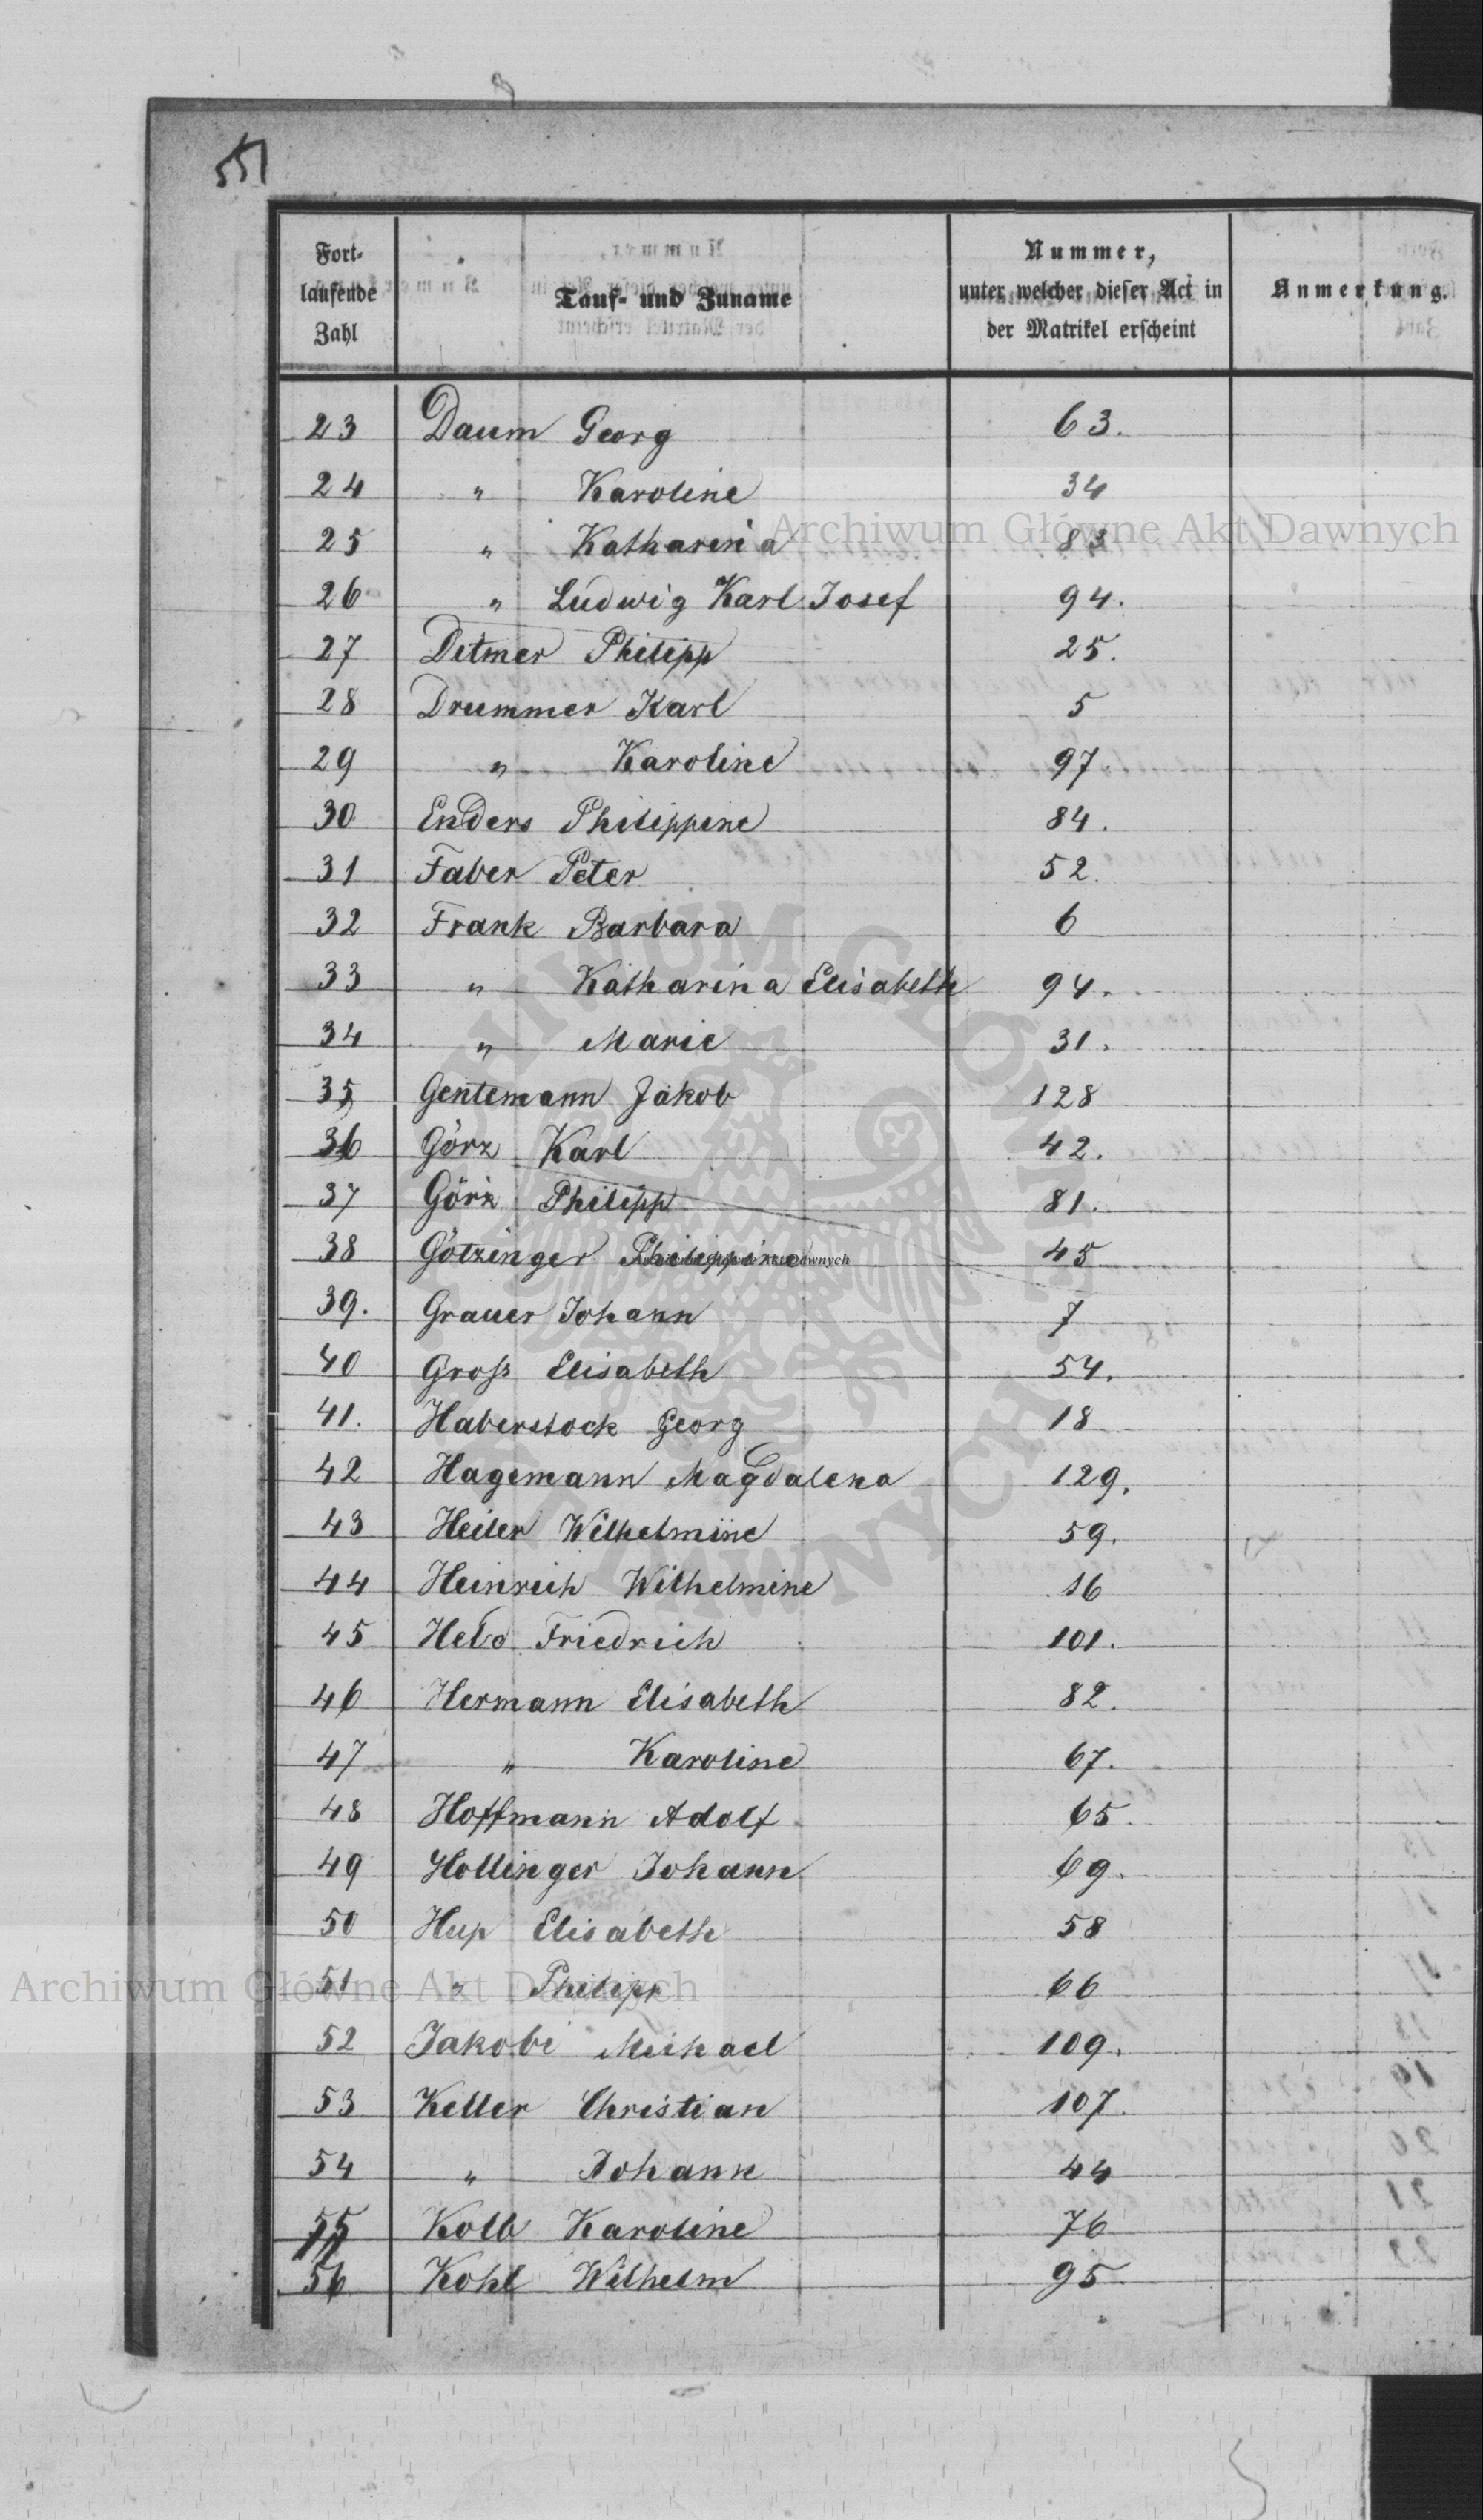 551
Fort-
laufende
Zahl
Tauf- und Zuname
Nummer,
unter welcher dieser Act in
der Matrikel erscheint
Anmerkung.
23 Daum Georg 63.
24 " Karoline 34
25 " Katharina 83
26 " Ludwig Karl Josef 94.
27 Detmer Philipp 25.
28 Drummer Karl 5
29 " Karoline 97.
30 Enders Philippine 84.
31 Faber Peter 52.
32 Frank Barbara 6
33 " Katharina Elisabeth 94.
34 " Marie 31.
35 Gentemann Jakob 128
36 Görz Karl 42.
37 Görz Philipp 81.
38 Götzinger Philippine 45
39. Grauer Johann 7
40 Groß Elisabeth 54.
41. Haberstock Georg 18
42 Hagemann Magdalena 129.
43 Heiler Wilhelmine 59.
44 Heinrich Wilhelmine 16
45 Held Friedrich 101.
46 Hermann Elisabeth 82.
47 " Karoline 67.
48 Hoffmann Adolf 65.
49 Hollinger Johann 69.
50 Hup Elisabeth 58
51 " Philipp 66
52 Jakobi Michael 109.
53 Keller Christian 107.
54 " Johann 44
55 Kolb Karoline 76
56 Kohl Wilhelm 95
Archiwum Główne Akt Dawnych
Archiwum Główne Akt Dawnych